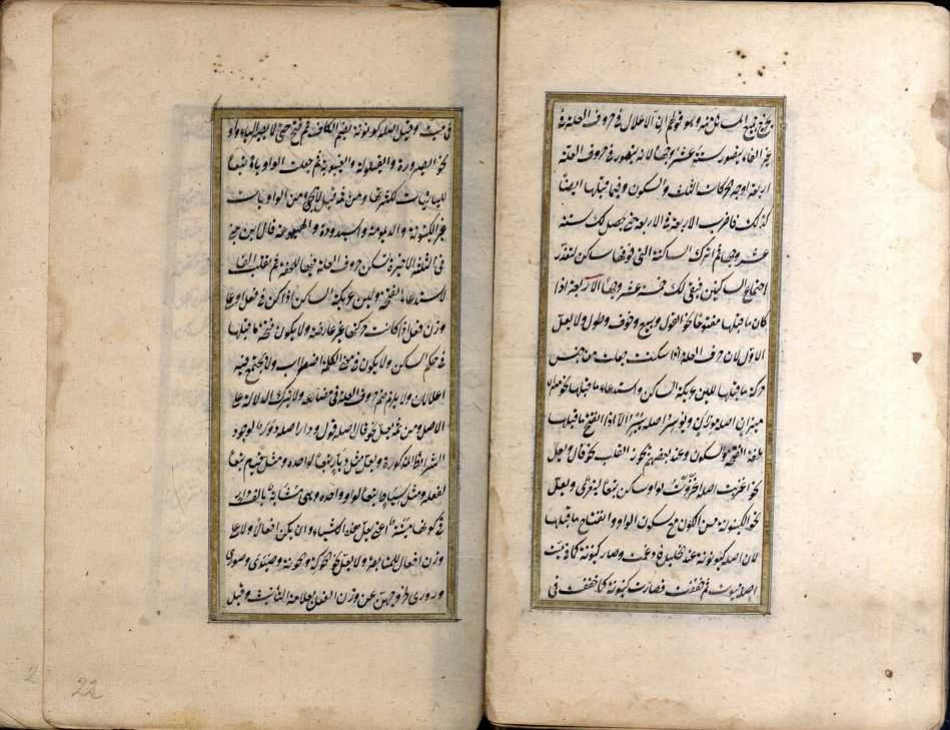 جميع المسائل منه وهو قولهم ان الاعلال في حروف العلة في
غير الفاء يتصور ستة عشر وجها لانه يتصور في حروف العلة
اربعة اوجه الحركات الثلث والسكون وفيما قبلها ايضا
كذلك فاضرب الاربعة في الاربعة حتى يحصل لك ستة
عشر وجها ثم اترك الساكنة التي فوقها ساكن لتعذر
اجتماع الساكنين فبقي لك خمسة عشر وجها الاربعة اذا
كان ما قبلها مفتوحا نحو القول وبيع وخوف وطول ولا يعل
الاول لان حرف العلة اذا سكنت جعلت من جنس
حركة ما قبلها للين عريكة الساكن واستدعاء ما قبلها نحو
ميزان اصله موزان ويوسر اصله ييسر الا اذا انفتح ما قبلها
لخفة الفتحة والسكون وعند بعضهم يجوز القلب نحو قال ويعل
نحو اغزيت اصله اغزوت بواو ساكن تبعا ليغزى ويعل
نحو الكينونة من الكون مع سكون الواو وانفتاح ما قبلها
لان اصله كيونونة عند الخليل فادغمت وصار كينونة كما في ميت
اصله ميوت ثم خففت فصارت كينونة كما خففت في
في ميت وقيل اصله كونونة بضم الكاف ثم فتح حتى لا يصير الياء واوا
نحو الصيرورة والقيلولة والغيبوبة ثم جعلت الواو ياء تبعا
لليائيات لكثرتها ومن ثمة قيل لا يجئ من الواويات
غير الكينونة والديمومة والسيدودة والهيعوعة قال ابن جني
في الثلثة الاخيرة تسكن حروف العلة فيها للخفة ثم تقلب الفا
لاستدعاء الفتحة ولين عريكة الساكن اذا كن في فعل او على
وزن فعل اذا كانت حركتها غير عارضة ولا يكون فتحة ما قبلها
في حكم السكون ولا يكون في معنى الكلمة اضطراب ولا يجتمع فيه
اعلالان ولا يلزم ضم حروف العلة في مضارعه ولا يترك للدلالة على
الاصل ومن ثمة يعل نحو قال اصله قول ودار اصله دور لوجود
الشرائط المذكورة ويعل مثل ديار تبعا لواحده ومثل قيام تبعا
لفعله ومثل سياط تبعا لواو واحده وهي مشابهة بالف دار
في كونها ميتة اعني يعل هذه الاشياء وان لم يكن افعالا ولا على
وزن افعال للمتابعة ولا يعل نحو الحوكة والخونة وحيدى وصورى
لخروجهن عن وزن الفعل بعلامة التانيث وقيل
22